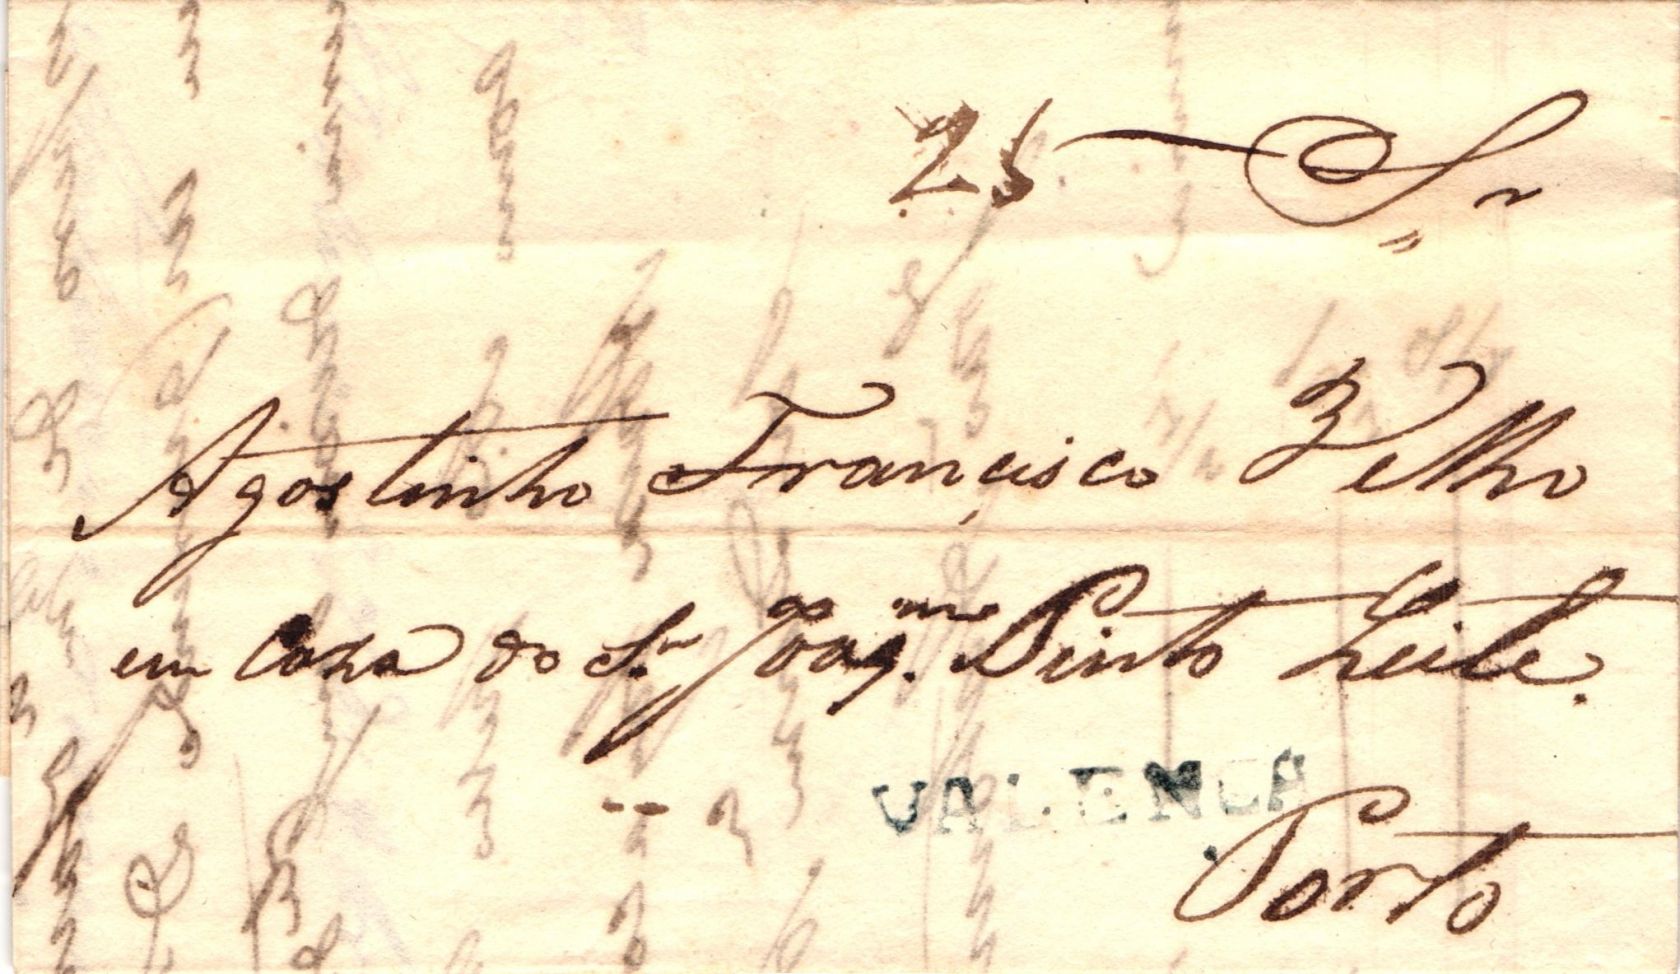 25 Sr
Agostinho Francisco Velho
em Caza do Sr Joaqm. Pinto Leite.
VALENCA
Porto